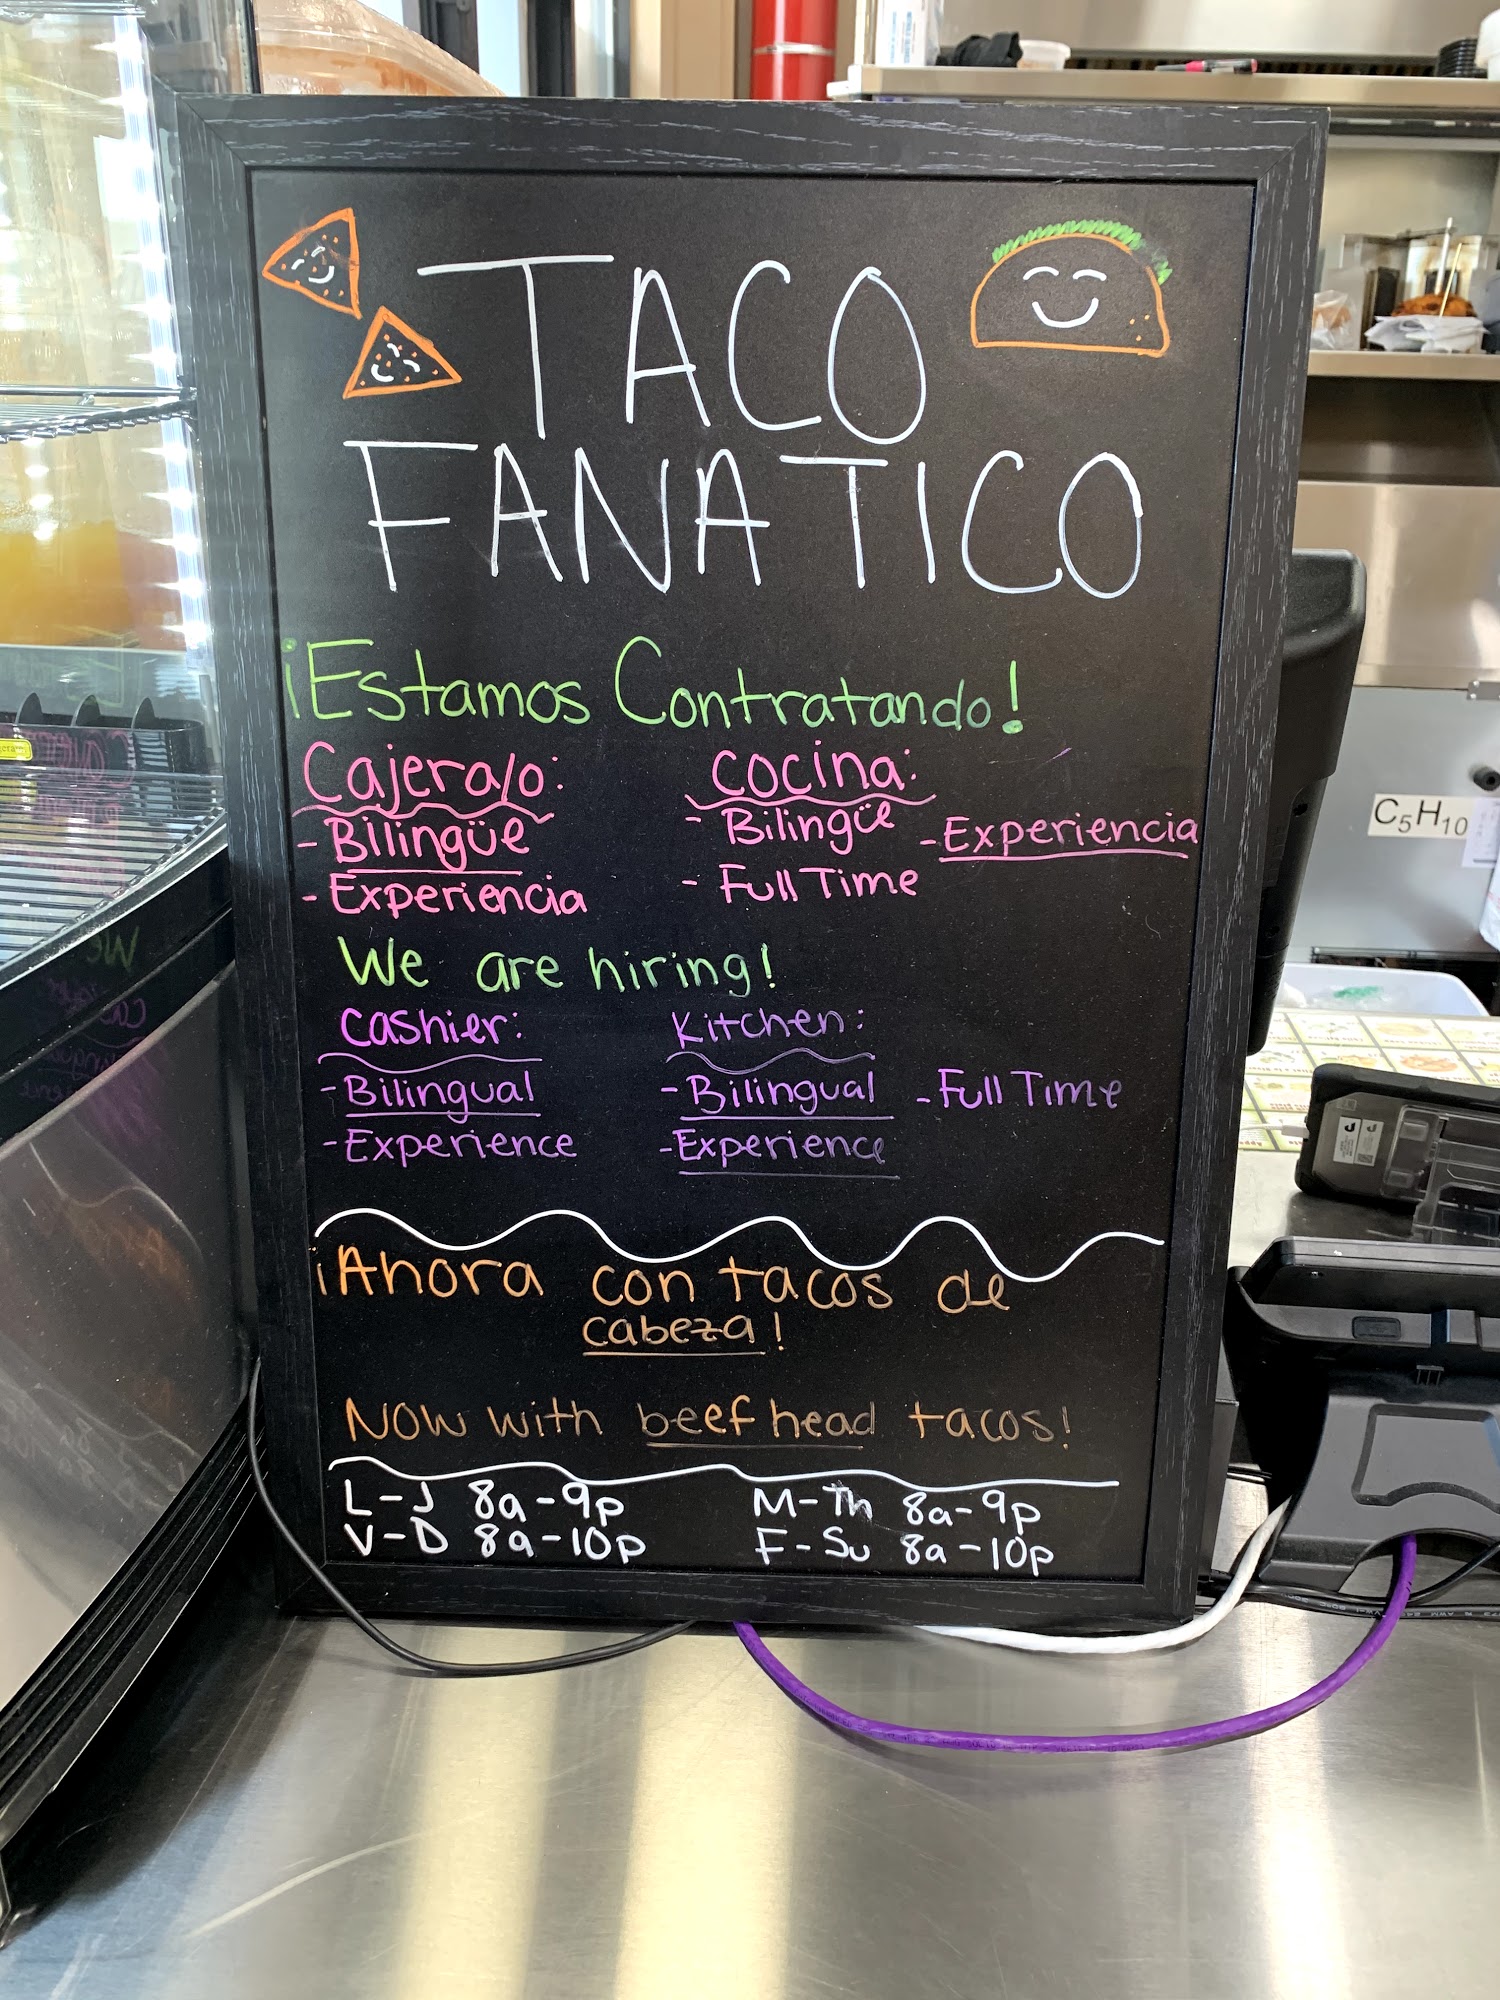 TACO
FANATICO
¡Estamos Contratando!
Cajera/o:
- Bilingüe
- Experiencia
Cocina:
- Bilingüe - Experiencia
- Full Time
We are hiring!
Cashier:
- Bilingual
- Experience
Kitchen:
- Bilingual - Full Time
- Experience
¡Ahora con tacos de
cabeza!
Now with beef head tacos!
L-J 8a-9p
V-D 8a-10p
M-Th 8a-9p
F-Su 8a-10p
C5H10